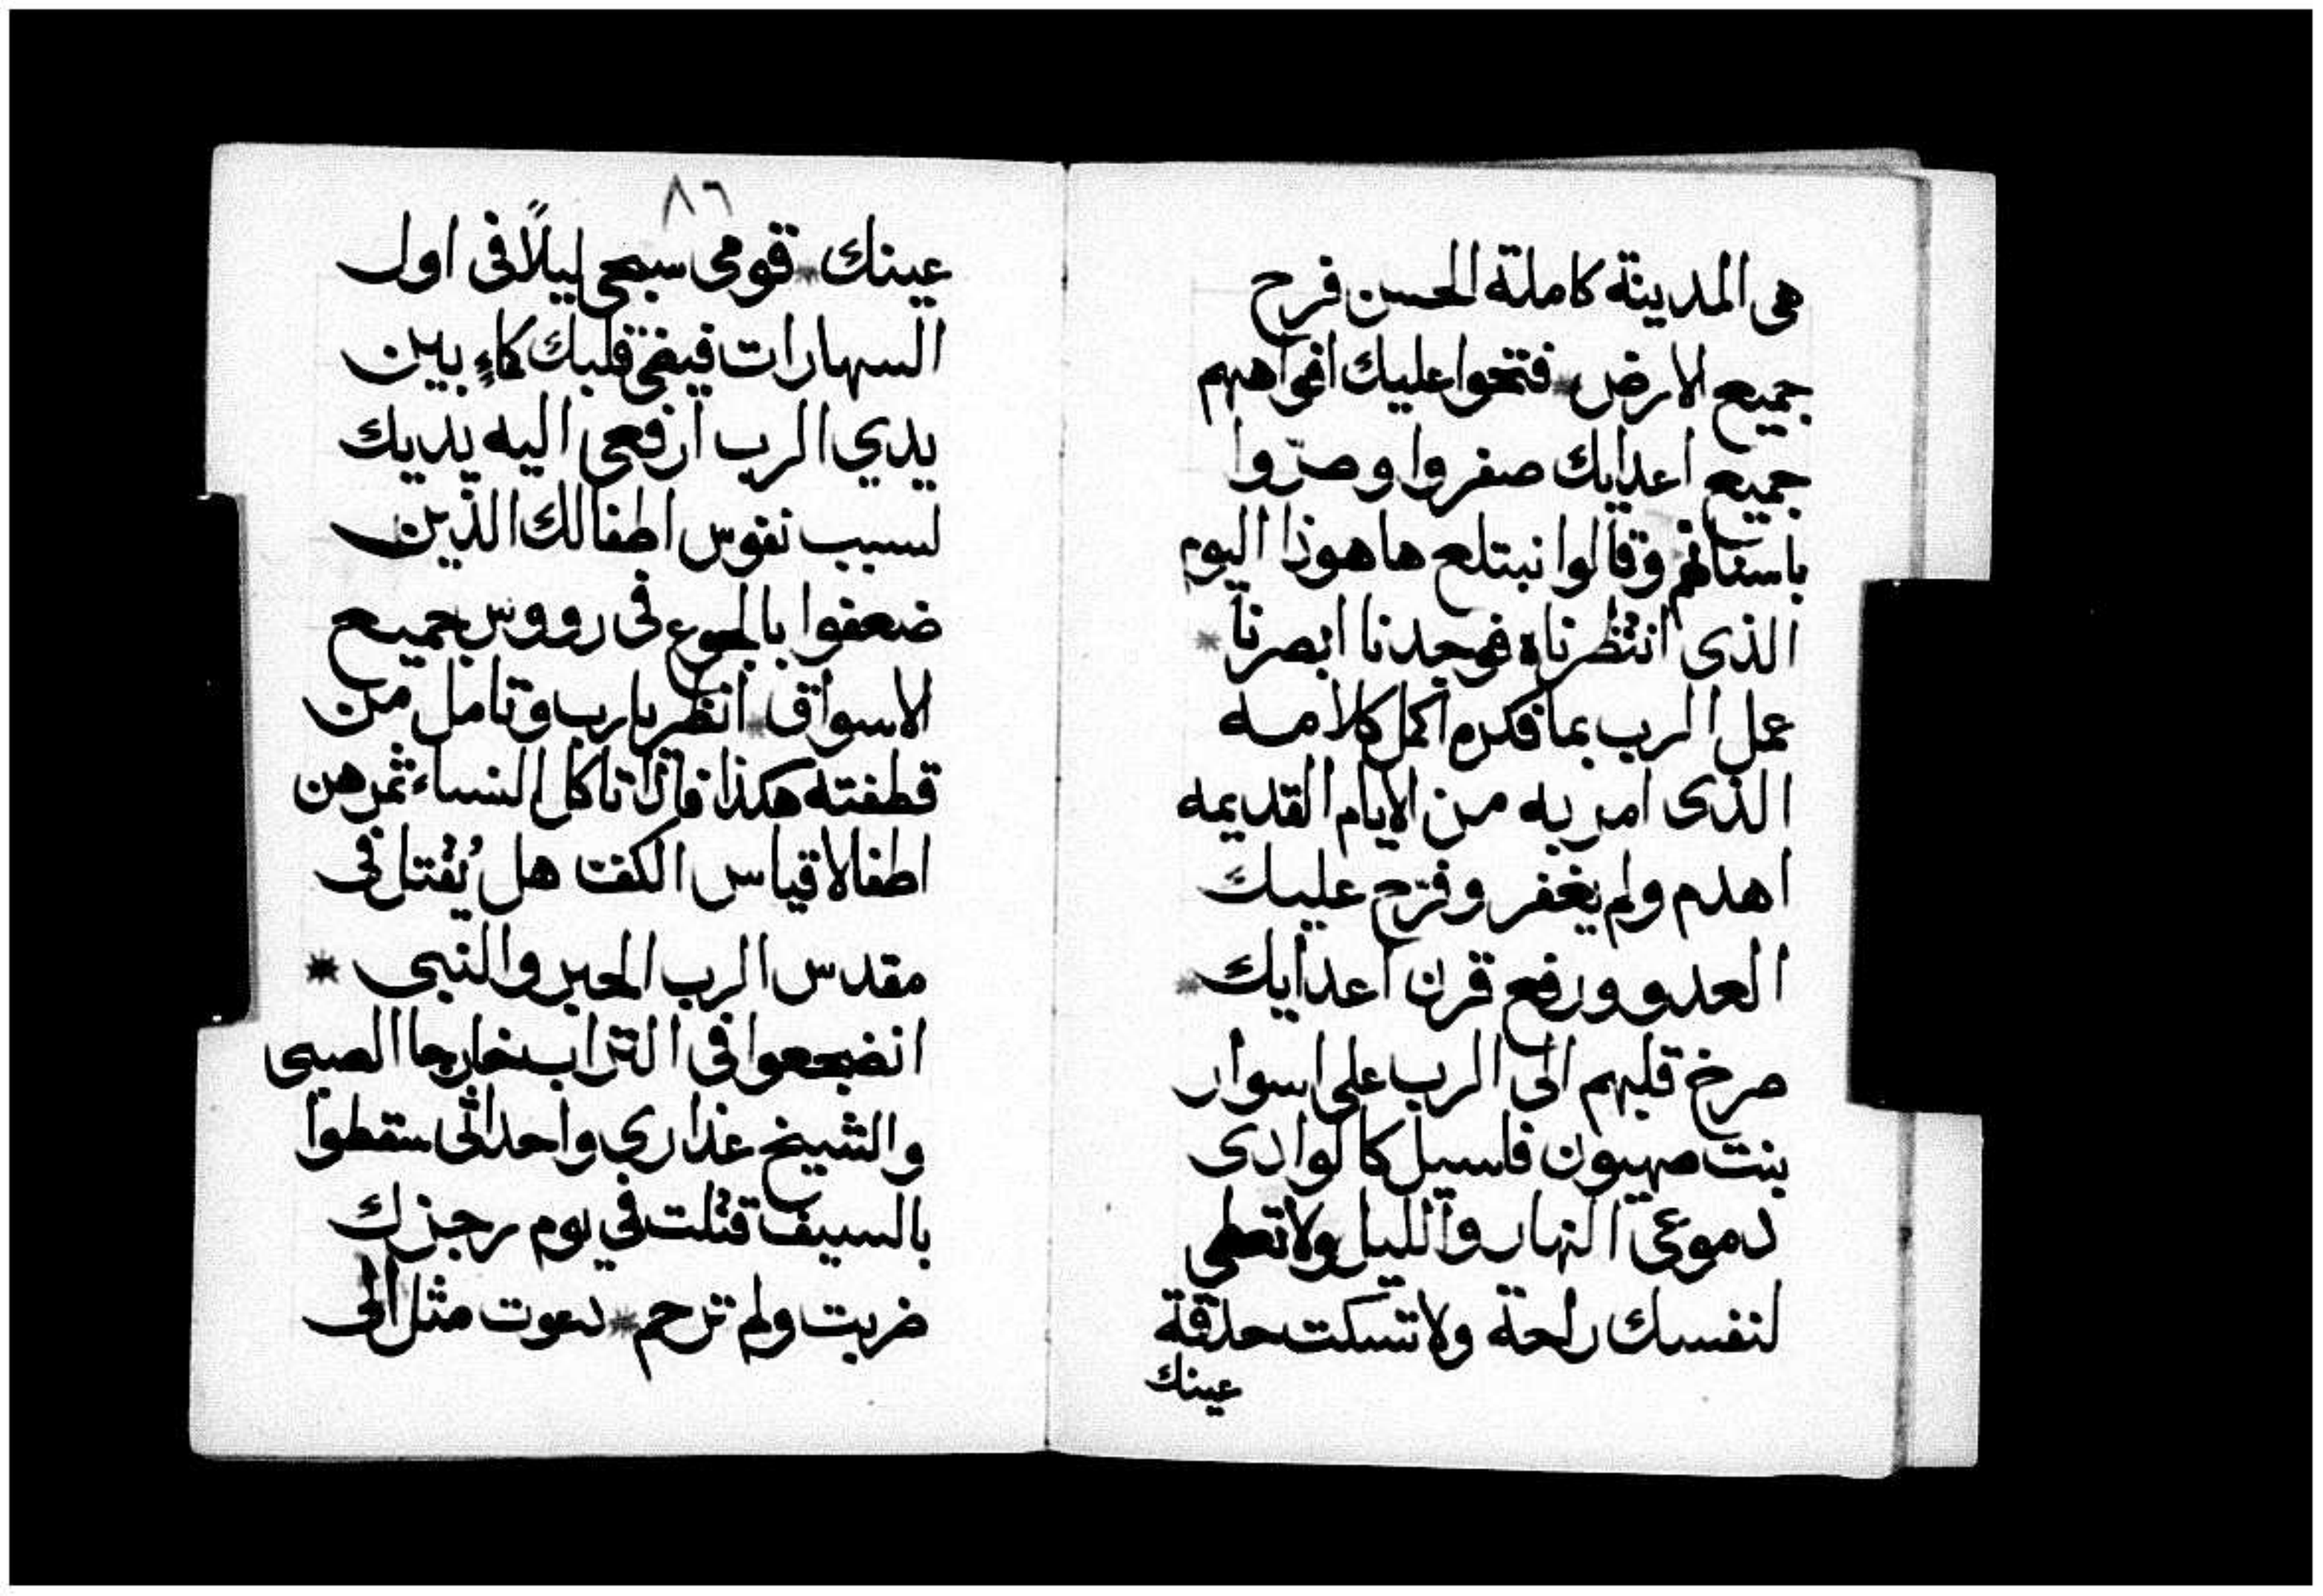 هى المدينة كاملة الحسن فرح
جميع الارض * فتحوا عليك افواههم
جميع اعدايك صفروا وصرّوا
باسنانهم وقالوا نبتلع ها هوذا اليوم
الذى انتظرناه فوجدنا ابصرنا *
عمل الرب بما فكره اكمل كلامه
الذى امر به من الايام القديمه
اهدم ولم يغفر وفرّح عليك
العدو ورفع قرن اعدايك *
صرخ قلبهم الى الرب على اسوار
بنت صهيون فاسيل كالوادى
دموعى النهار والليل ولا تعطى
لنفسك راحة ولا تسكت حدقة
عينك
٨٦
عينك * قومى سبحى ليلًا فى اول
السهارات قلبك كماءٍ بين
يدي الرب ارفعى اليه يديك
لسبب نفوس اطفالك الذين
ضعفوا بالجوع فى رووس جميع
الاسواق * انظر يا رب وتامل من
قطفته هكذا تاكل النساء ثمرهن
اطفالا قياس الكف هل يُقتل فى
مقدس الرب الحبر والنبى *
انضجعوا فى التراب خارجا الصبى
والشيخ عذاري واحداثى سقطوا
بالسيف قتلت في يوم رجزك
ضربت ولم ترحم * دعوت مثل الى